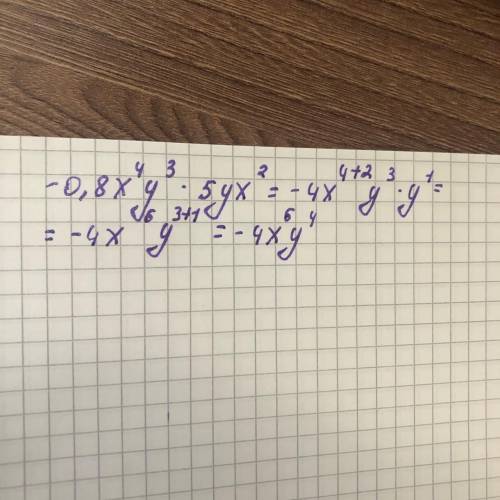 -0,8x⁴y³ · 5yx² = -4x⁴⁺²y³ · y¹ =
= -4x⁶y³⁺¹ = -4x⁶y⁴